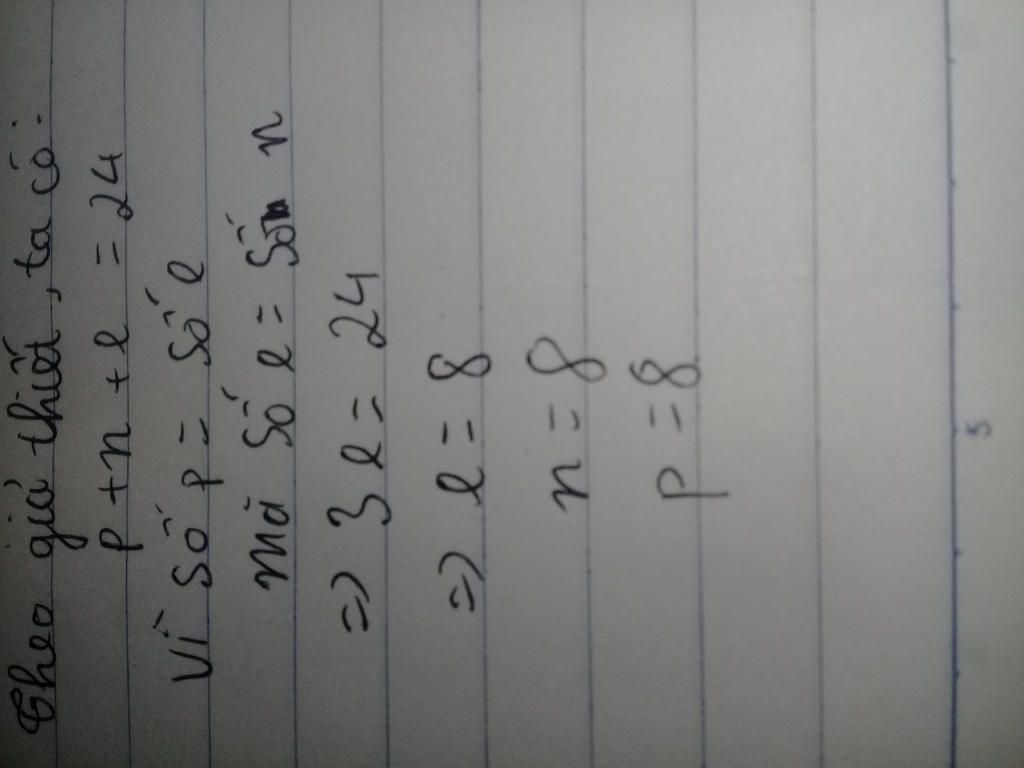 Theo giả thiết, ta có:
p + n + e = 24
Vì số p = số e
mà số e = số n
=> 3 e = 24
=> e = 8
n = 8
p = 8
5